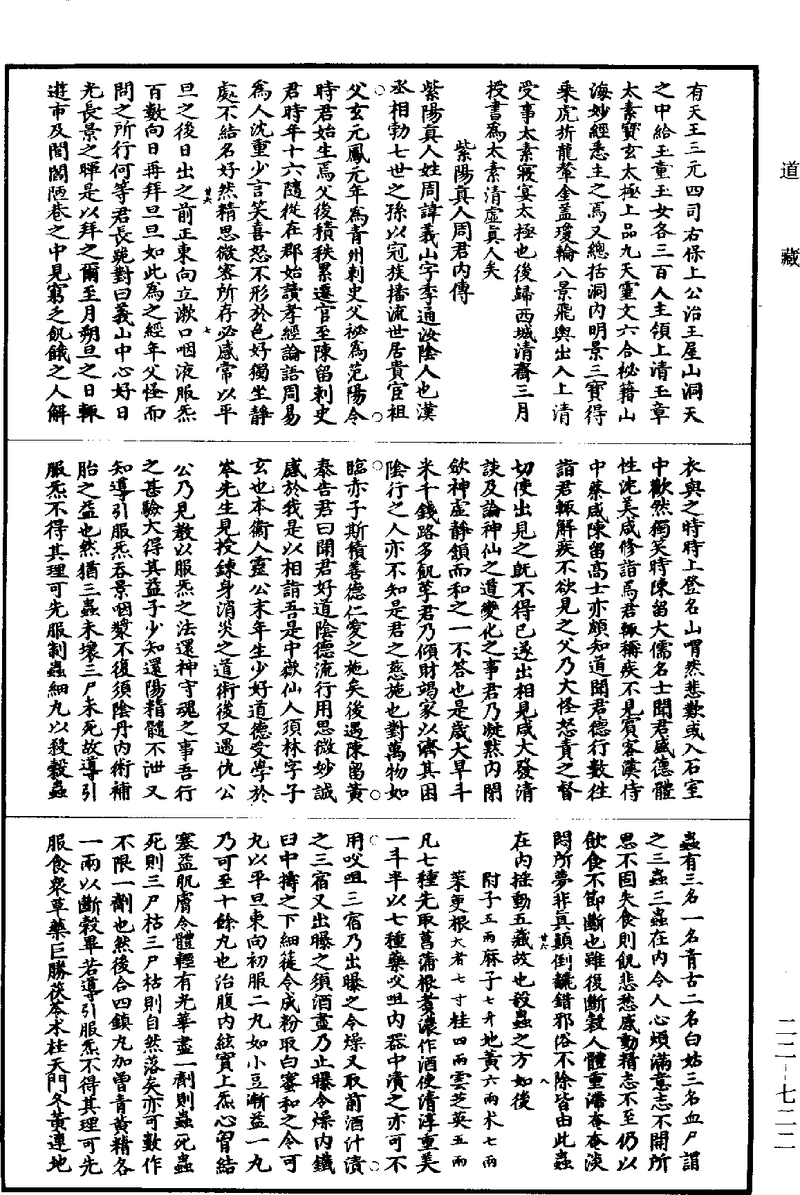 道藏
有天王三元四司右保上公治王屋山洞天
之中給玉童玉女各三百人主領上清玉章
太素寶玄太極上品九天靈文六合祕籍山
海妙經悉主之焉又總括洞內明景三寶得
乘虎旂龍輦金蓋瓊輪八景飛輿出入上清
受事太素寢宴太極也後歸西城清齋三月
授書為太素清虛真人矣
紫陽真人周君內傳
紫陽真人姓周諱義山字季通汝陰人也漢
丞相勃七世之孫以冠族播流世居貴宦祖
父玄元鳳元年為青州刺史父祕為范陽令
時君始生焉父後積秩累遷官至陳留刺史
君時年十六隨從在郡始讀孝經論語周易
為人沈重少言笑喜怒不形於色好獨坐靜
處不結名好然精思微密所存必感常以平
旦之後日出之前正東向立漱口咽液服炁
百數向日再拜旦旦如此為之經年父怪而
問之所行何等君長跪對曰義山中心好日
光長景之暉是以拜之爾至月朔旦之日輒
遊市及閭閻陋巷之中見窮乏飢餓之人解
衣與之時時上登名山喟然悲歎或入石室
中歡然獨笑時陳留大儒名士聞君盛德體
性沈美咸修詣焉君輒稱疾不見賓客漢侍
中蔡咸陳留高士亦頗知道聞君德行數往
詣君輒解疾不欲見之父乃大怪怒責之督
切使出見之既不得已遂出相見咸大發清
談及論神仙之道變化之事君乃凝默內閉
斂神虛靜頷而和之一不答也是歲大旱斗
米千錢路多飢莩君乃傾財竭家以濟其困
陰行之人亦不知是君之慈施也對萬物如
臨赤子斯積善德仁愛之施矣後遇陳留黃
泰告君曰聞君好道陰德流行用思微妙誠
感於我是以相詣吾是中嶽仙人須林字子
玄也本衛人靈公末年生少好道德受學於
岑先生見授鍊身消災之道術後又遇仇公
公乃見教以服炁之法還神守魂之事吾行
之甚驗大得其益子少知還陽精髓不泄又
知導引服炁吞景咽漿不復須陰丹內術補
胎之益也然猶三蟲未壞三尸未死故導引
服炁不得其理可先服制蟲細丸以殺穀蟲
蟲有三名一名青古二名白姑三名血尸謂
之三蟲三蟲在內令人心煩滿意志不開所
思不固失食則飢悲愁感動精志不至仍以
飲食不節斷也雖復斷穀人體重滯奄奄淡
悶所夢非真顛倒飜錯邪俗不除皆由此蟲
在內搖動五藏故也殺蟲之方如後
附子五兩麻子七升地黃六兩朮七兩
茱萸根大者七寸桂四兩雲芝英五兩
凡七種先取菖蒲根煮濃作酒使清淳重美
一斗半以七種藥㕮咀內器中漬之亦可不
用㕮咀三宿乃出曝之令燥又取前酒汁漬
之三宿又出曝之須酒盡乃止曝令燥內鐵
臼中擣之下細簁令成粉取白蜜和之令可
丸以平旦東向初服二丸如小豆漸益一丸
乃可至十餘丸也治腹內絃實上炁心胷結
塞益肌膚令體輕有光華盡一劑則蟲死蟲
死則三尸枯三尸枯則自然落矣亦可數作
不限一劑也然後合四鎮丸加曾青黃精各
一兩以斷穀畢若導引服炁不得其理可先
服食衆草藥巨勝茯苓朮桂天門冬黃連地
二二—七二二